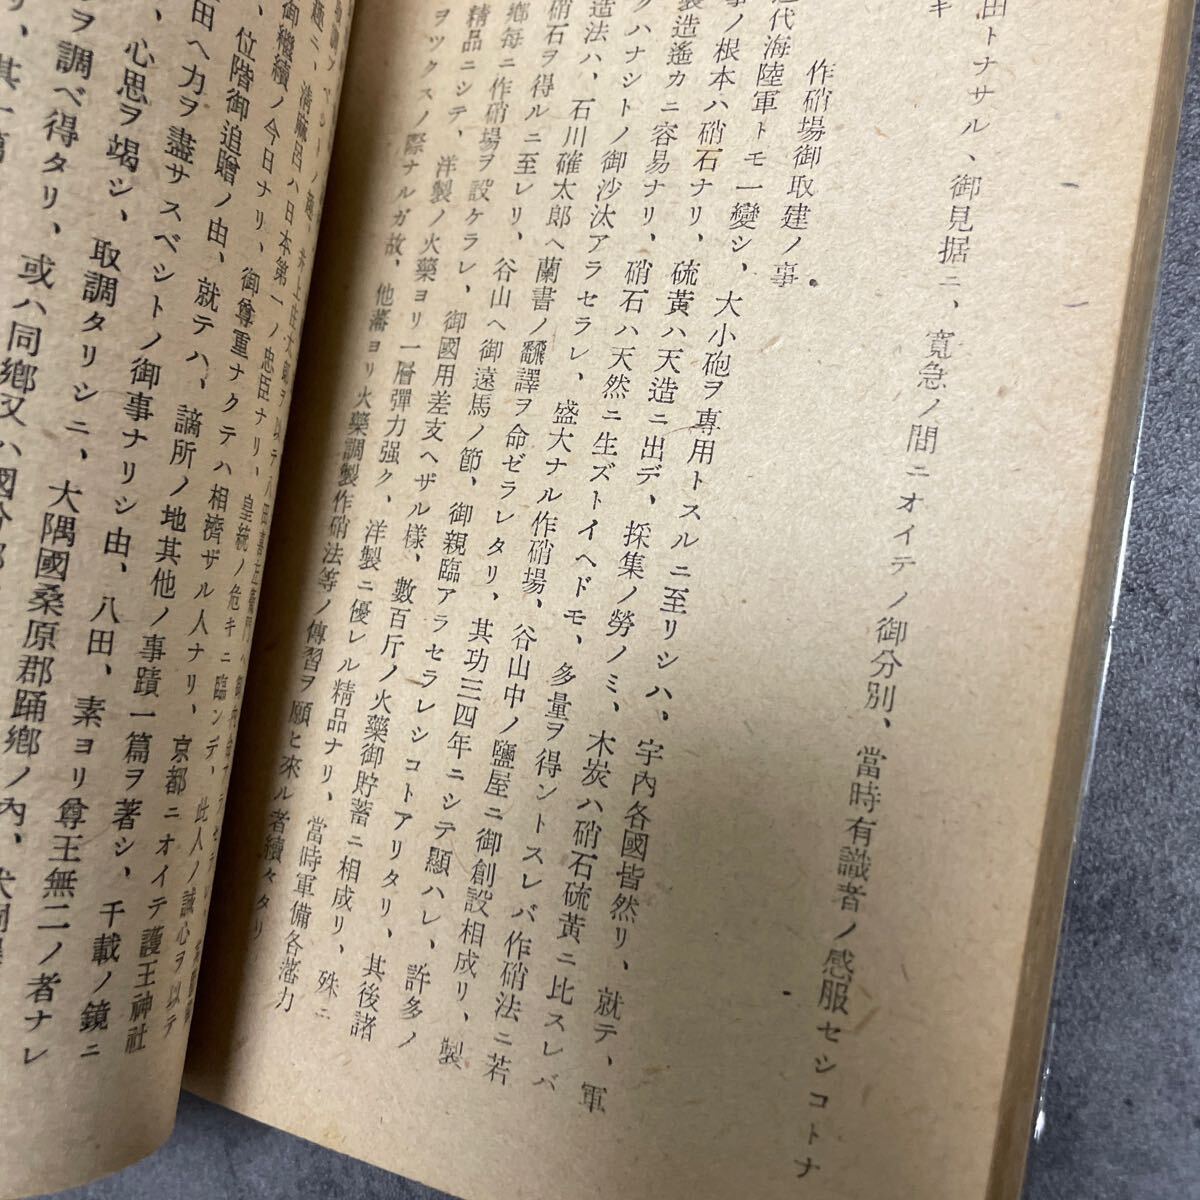 田トナサル、御見据ニ、寛急ノ間ニオイテノ御分別、當時有識者ノ感服セシコトナ
キ
作硝場御取建ノ事
近代海陸軍トモ一變シ、大小砲ヲ專用トスルニ至リシハ、宇内各國皆然リ、就テ、軍
事ノ根本ハ硝石ナリ、硫黃ハ天造ニ出デ、採集ノ勞ノミ、木炭ハ硝石硫黃ニ比スレバ
製造遙カニ容易ナリ、硝石ハ天然ニ生ズトイヘドモ、多量ヲ得ントスレバ作硝法ニ若
クハナシトノ御沙汰アラセラレ、盛大ナル作硝場、谷山中ノ鹽屋ニ御創設相成リ、製
造法ハ、石川確太郎ヘ蘭書ノ飜譯ヲ命ゼラレタリ、其功三四年ニシテ顯ハレ、許多ノ
硝石ヲ得ルニ至レリ、谷山ヘ御遠馬ノ節、御親臨アラセラレシコトアリタリ、其後諸
鄕每ニ作硝場ヲ設ケラレ、御國用差支ヘザル樣、數百斤ノ火藥御貯蓄ニ相成リ、殊ニ
精品ニシテ、洋製ノ火藥ヨリ一層彈力强ク、洋製ニ優レル精品ナリ、當時軍備各藩力
ヲツクスノ際ナルガ故、他藩ヨリ火藥調製作硝法等ノ傳習ヲ願ヒ來ル者續々タリ
趣ニ、淸麻呂ハ日本第一ノ忠臣ナリ、皇統ノ危キニ臨ンデ、此人ノ誠心ヲ以テ
御繼續ノ今日ナリ、御尊重ナクテハ相濟ザル人ナリ、京都ニオイテ護王神社
、位階御追贈ノ由、就テハ、謫所ノ地其他ノ事蹟一篇ヲ著シ、千載ノ鏡ニ
田ヘ力ヲ盡サスベシトノ御事ナリシ由、八田、素ヨリ尊王無二ノ者ナレ
、心思ヲ竭シ、取調タリシニ、大隅國桑原郡踊鄕ノ内、犬飼
ヲ調ベ得タリ、或ハ同鄕又ハ國分
リ、其一篇